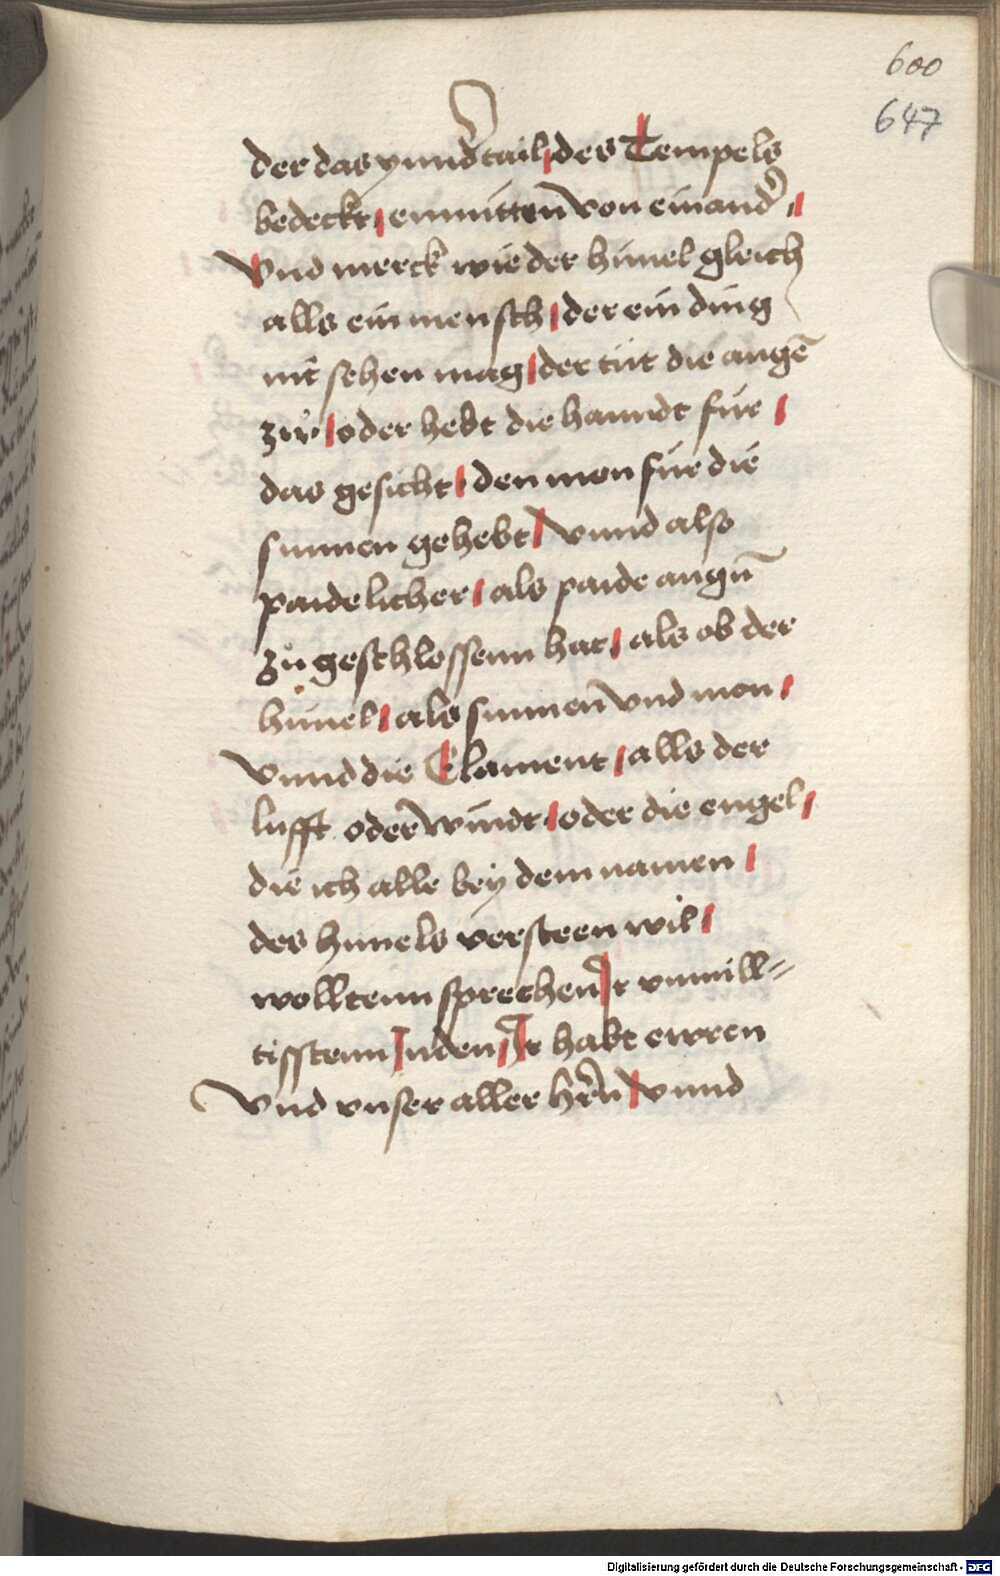 600
647
der das ynnd' tail des Tempels
bedeckt enmitten von einand'
Vnd merck wie der himel gleich
alls ein mensch der ein ding
nit sehen mag der tut die augē
zu oder hebt die hanndt fur
das gesicht den mon fur die
sunnen gehebt vnnd also
paidelicher als paide augn̄
zu geschlossenn hat als ob der
himel als sunnen vnd mon
vnnd die Elament alls der
lufft oder windt oder die engel
die ich alle bey dem namen
des himels versteen wil
wolltenn sprechen Ir vnmill=
tisstenn Juden Ir habt ewren
vnd vnser aller hr̄n vnnd
Digitalisierung gefördert durch die Deutsche Forschungsgemeinschaft - DFG